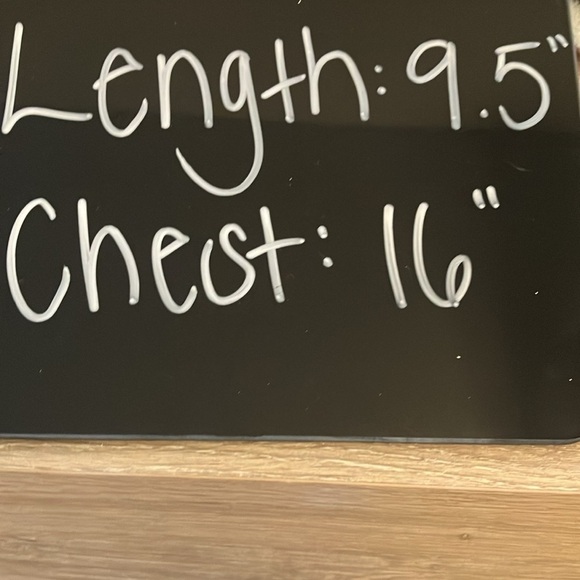 Length: 9.5"
Chest: 16"